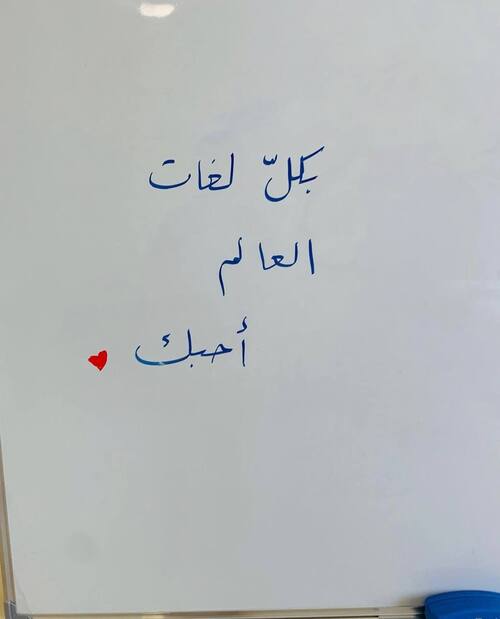 بكلّ لغات
العالم
أحبك